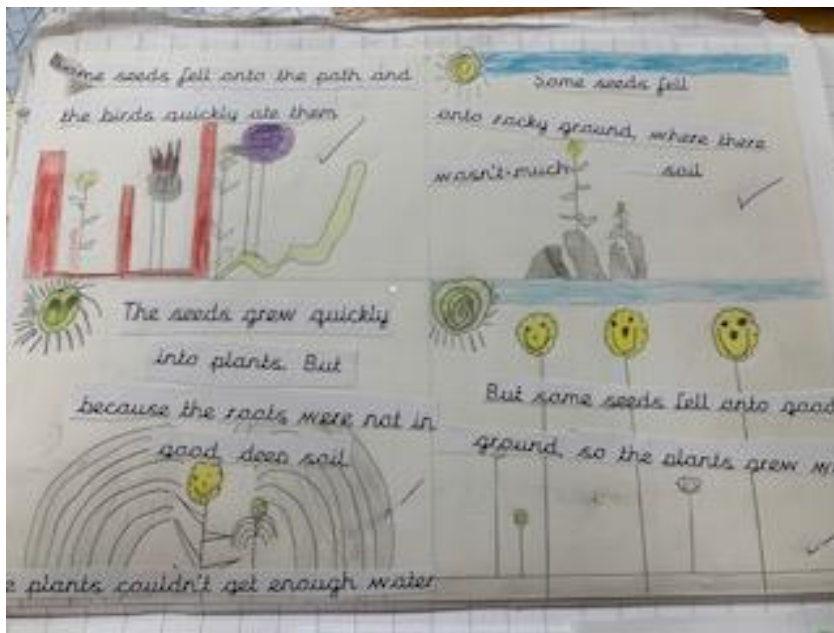 Some seeds fell onto the path and
the birds quickly ate them
Some seeds fell
onto rocky ground, where there
wasn't much
soil
The seeds grew quickly
into plants. But
because the roots were not in
good deep soil
plants couldn't get enough water
But some seeds fell onto good
ground, so the plants grew